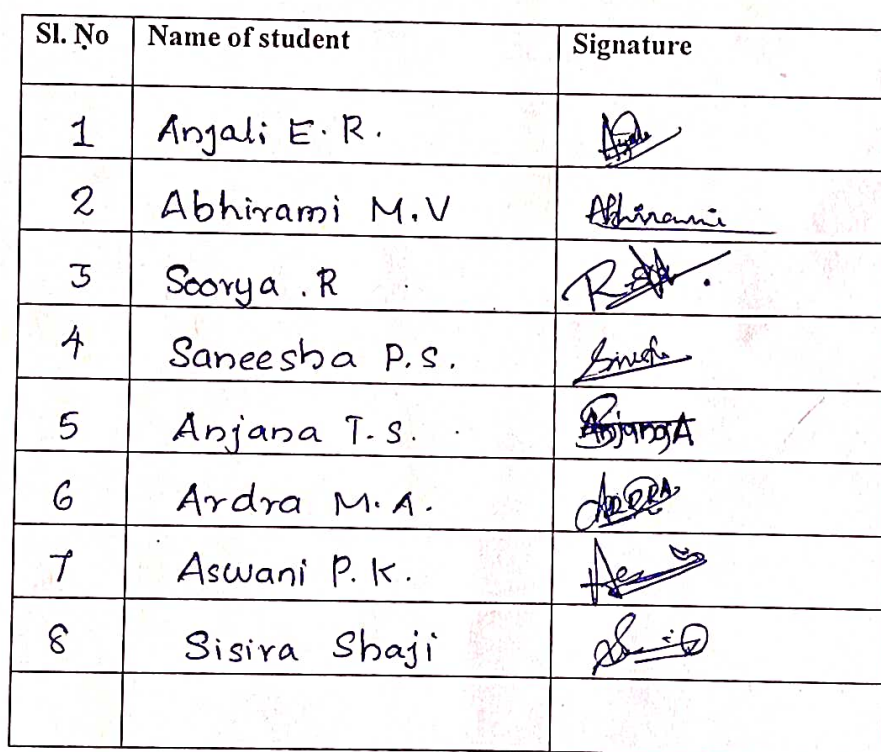 Sl. No Name of student Signature
1 Anjali E. R. Anjali
2 Abhirami M.V Abhirami
3 Soorya .R
4 Saneesha P.S.
5 Anjana T.S. Anjana
6 Ardra M.A. ARDRA
7 Aswani P.K.
8 Sisira Shaji